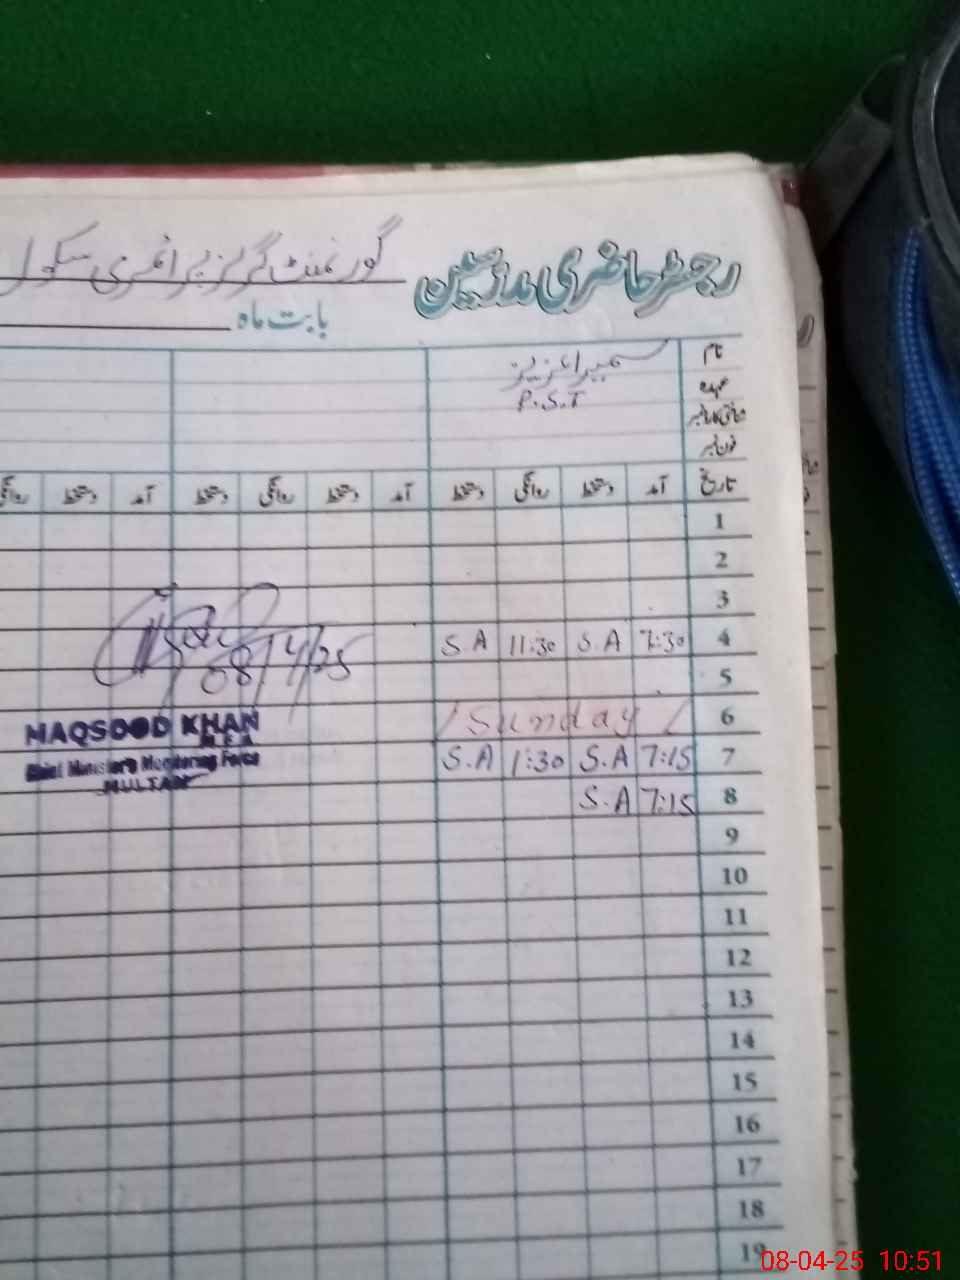 رجسٹر حاضری مدرسین گورنمنٹ گرلز پرائمری سکول
بابت ماہ
نام سمیرا عزیز
عہدہ P.S.T
شناختی کارڈ نمبر
فون نمبر
تاریخ آمد دستخط روانگی دستخط آمد دستخط روانگی دستخط آمد دستخط روانگی
1
2
3
4 7:30 S.A 11:30 S.A
5
6 Sunday
7 7:15 S.A 1:30 S.A
8 7:15 S.A
9
10
11
12
13
14
15
16
17
18
19
08/4/25
MAQSOOD KHAN
M.E.A
Chief Minister's Monitoring Force
MULTAN
08-04-25 10:51